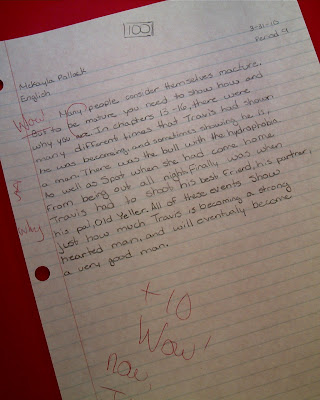 100
3-31-10
Period 9
Mckayla Pollack
English
Wow! Many people consider themselves macture.
But to be mature you need to show how and
why you are. In chapters 15-16, there were
many different times that Travis had shown
he was becoming, and sometimes showing he is,
a man. There was the bull with the hydrophobia
to well as Spot when she had come home
from being out all night. Finally, was when
Travis had to shoot his best friend, his partner,
Why his pal, Old Yeller. All of these events show
just how much Travis is becoming a strong
hearted man, and will eventually become
a very good man.
+10
Wow!
now,
I